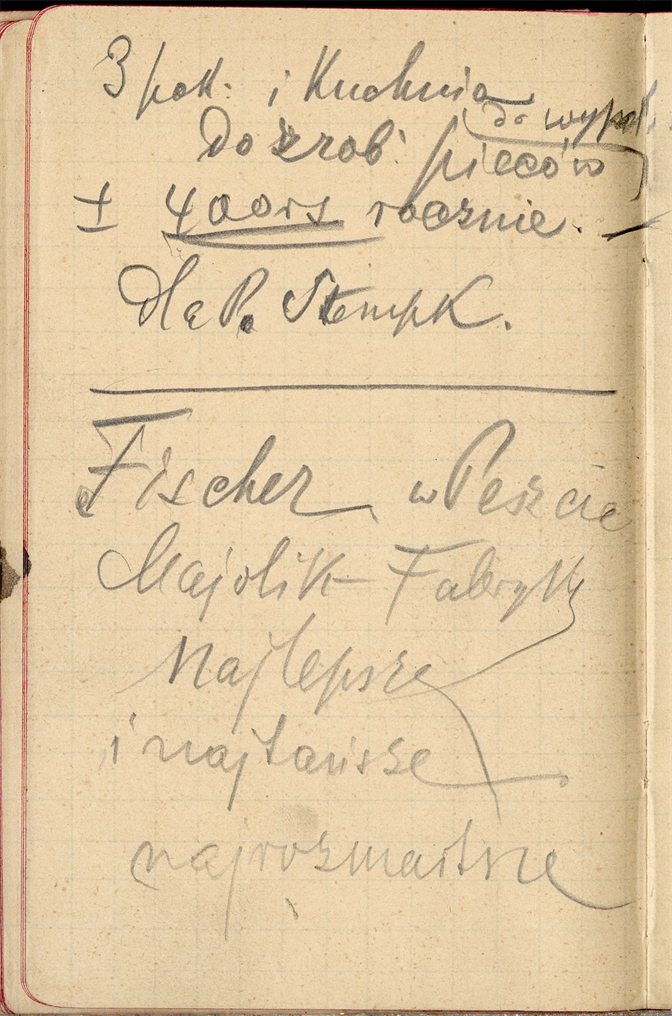 3 pok. i Kuchnia
do wypal.
Do zrob. pieców
± 400 rs rocznie.
dla P. Stempk.
Fischer w Peszcie
Majolik-Fabryk
najlepsze
i najtańsze
najrozmaitsze